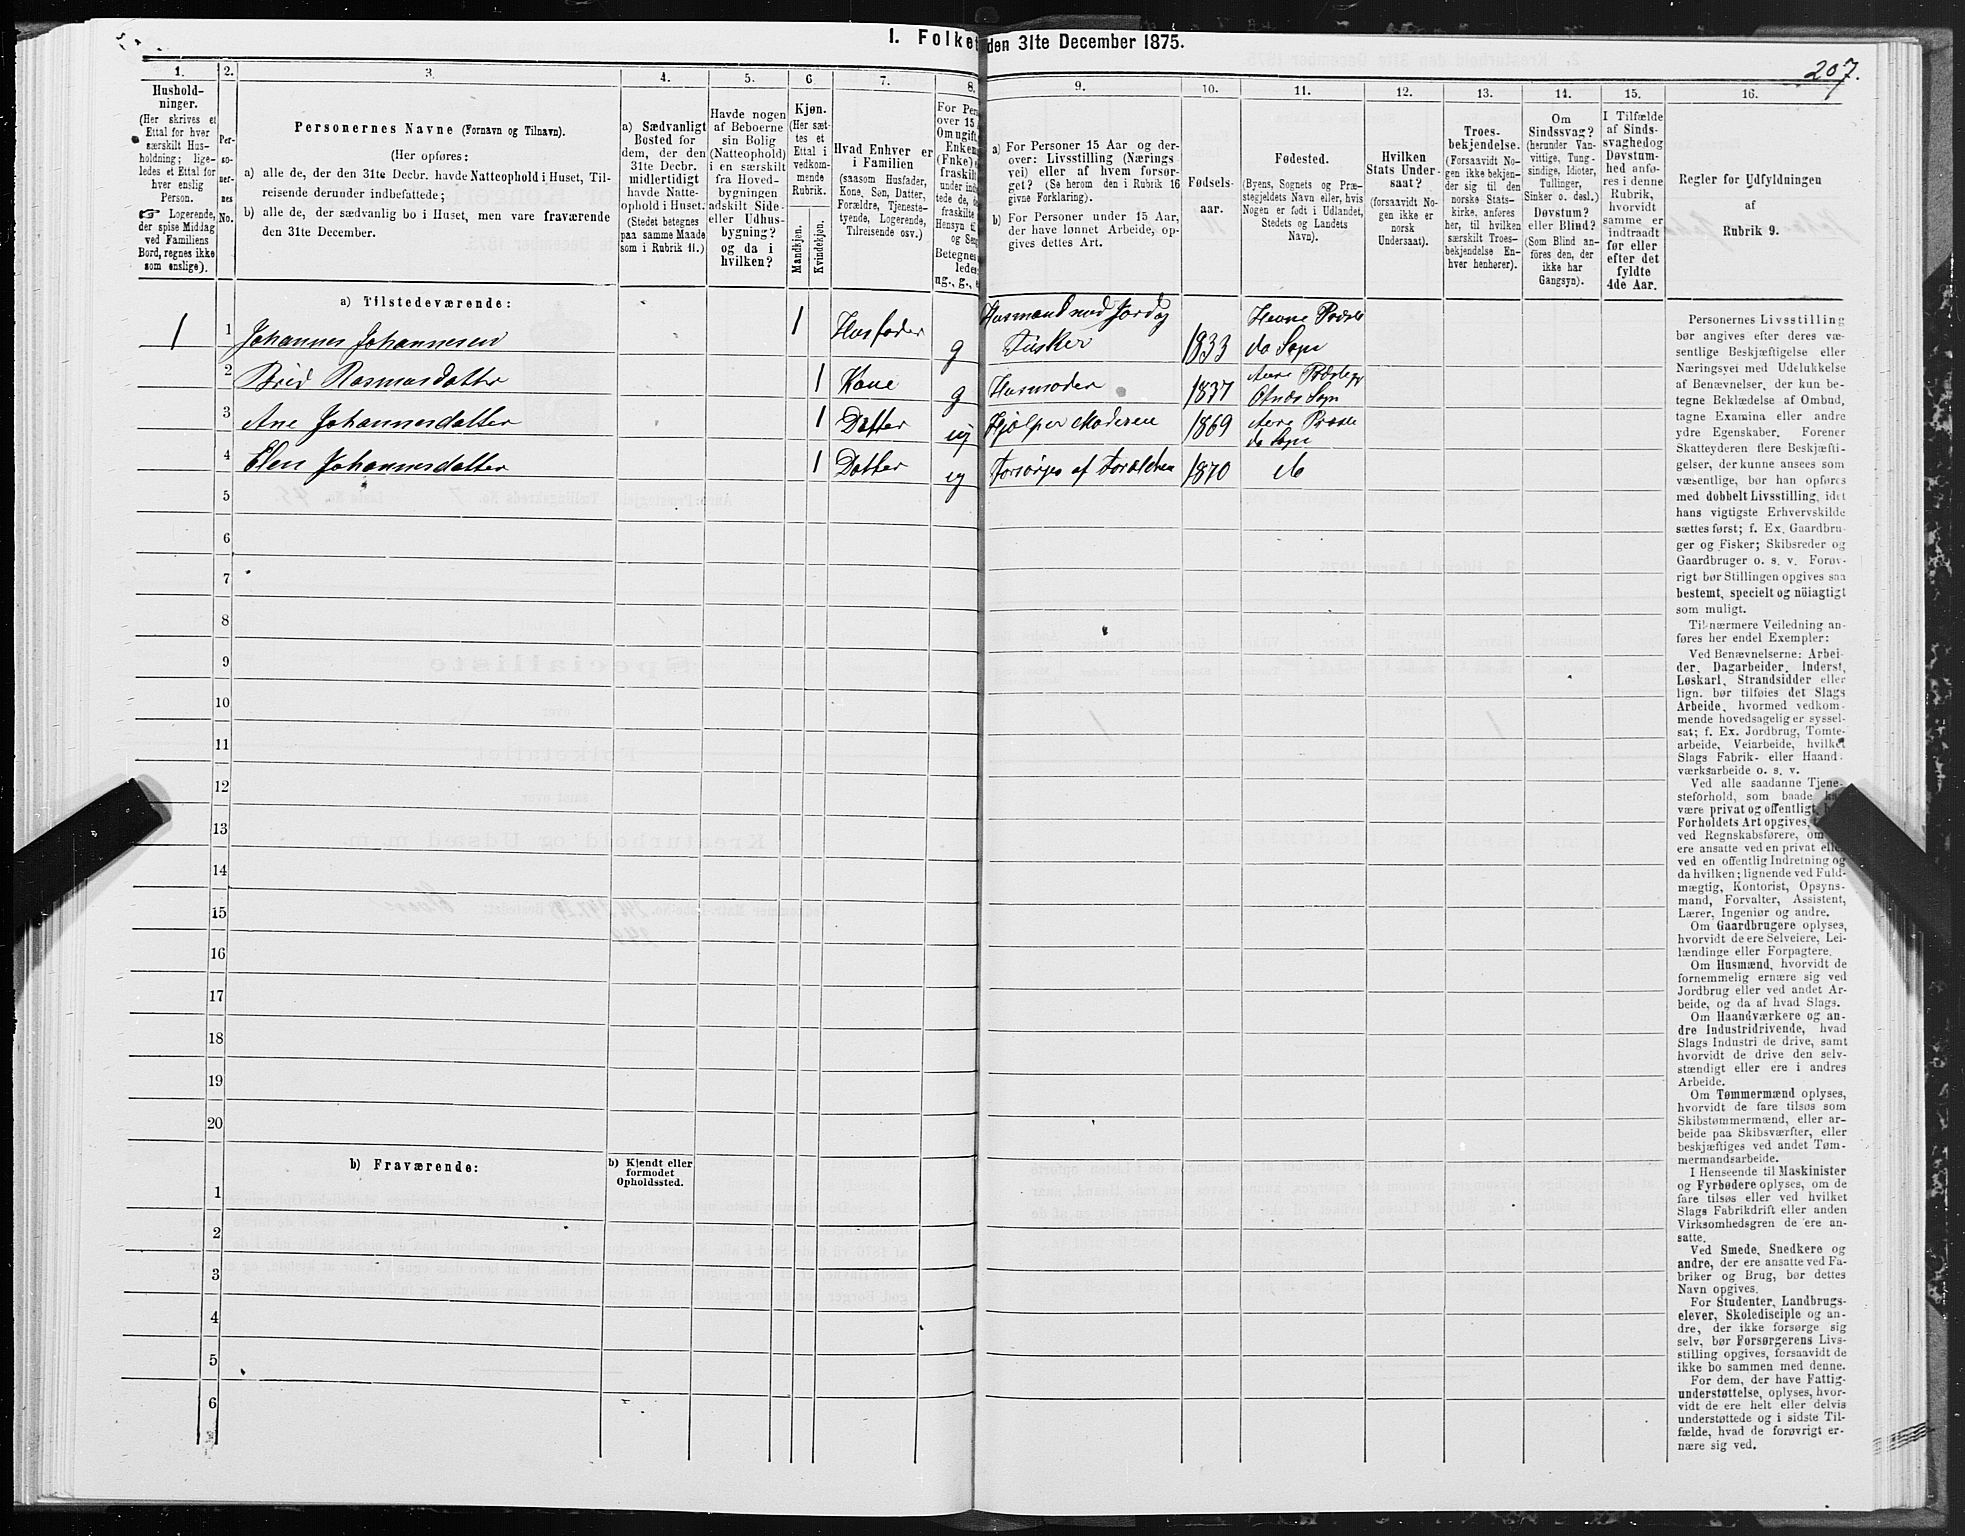 I. Folket
den 31te December 1875.
207.
1.
2.
3.
4.
5.
6
7.
8.
9.
10.
11.
12.
13.
14.
15.
16.
Hushold-
ninger.
(Her skrives et
Ettal for hver
særskilt Hus-
holdning; lige-
ledes et Ettal for
hver enslig
Person.
☞ Logerende,
der spise Middag
ved Familiens
Bord, regnes ikke
som enslige).
Per-
so-
ner-
nes
No.
Personernes Navne (Fornavn og Tilnavn).
(Her opføres:
a) alle de, der den 31te Decbr. havde Natteophold i Huset, Til-
reisende derunder indbefattede;
b) alle de, der sædvanlig bo i Huset, men vare fraværende
den 31te December.
a) Sædvanligt
Bosted for
dem, der den
31te Decbr.
midlertidigt
havde Natte-
ophold i Huset.
(Stedet betegnes
paa samme Maade
som i Rubrik 11.)
Havde nogen
af Beboerne
sin Bolig
(Natteophold)
i en særskilt
fra Hoved-
bygningen
adskilt Side-
eller Udhus-
bygning?
og da i
hvilken?
Kjøn.
(Her sæt-
tes et
Ettal i
vedkom-
mende
Rubrik.
Mandkjøn.
Kvindekjøn.
Hvad Enhver er
i Familien
(saasom Husfader,
Kone, Søn, Datter,
Forældre, Tjeneste-
tyende, Logerende,
Tilreisende osv.)
For Pers
over 15
Om ugift,
Enkem
(Fnke)
fraskilt
under
tede de,
fraskilte
Hensyn til
og Seng
Betegnes
ledes
ug., g., e
a) For Personer 15 Aar og der-
over: Livsstilling (Nærings-
vei) eller af hvem forsør-
get? (Se herom den i Rubrik 16
givne Forklaring).
b) For Personer under 15 Aar,
der have lønnet Arbeide, op-
gives dettes Art.
Fødsels-
aar.
Fødested.
(Byens, Sognets og Præ-
stegjeldets Navn eller, hvis
Nogen er født i Udlandet,
Stedets og Landets
Navn).
Hvilken
Stats Under-
saat?
(forsaavidt No-
gen ikke er
norsk
Undersaat).
Troes-
bekjendelse.
(Forsaavidt No-
gen ikke bekjen-
der sig til den
norske Stats-
kirke, anføres
her, til hvilken
særskilt Troes-
bekjendelse En-
hver henhører).
Om
Sindssvag?
(herunder Van-
vittige, Tung-
sindige, Idioter,
Tullinger,
Sinker o. desl.)
Døvstum?
eller Blind?
(Som Blind an-
føres den, der
ikke har
Gangsyn).
I Tilfælde
af Sinds-
svaghed og
Døvstum-
hed anfø-
res i denne
Rubrik,
hvorvidt
samme er
indtraadt
før eller
efter det
fyldte
4de Aar.
Regler for Udfyldningen
af
Rubrik 9.
a) Tilstedeværende:
1 1 Johannes Johannesen 1 Husfader g Husmand med Jord og Fisker 1833 Hevne Præste do Sogn
2 Brid Rasmusdatter 1 Kone g Husmoder 1837 Aure Præstegj
3 Ane Johannesdatter 1 Datter ug Hjælper Moderen 1869 Aure Præste do Sogn
4 Elen Johannesdatter 1 Datter ug Forsørges af Forældrene 1870 do
5
6
7
8
9
10
11
12
13
14
15
16
17
18
19
20
b) Fraværende:
b) Kjendt eller
formodet
Opholdssted.
1
2
3
4
5
6
Personernes Livsstilling
bør angives efter deres væ-
sentlige Beskjæftigelse eller
Næringsvei med Udelukkelse
af Benævnelser, der kun be-
tegne Beklædelse af Ombud,
tagne Examina eller andre
ydre Egenskaber. Forener
Skatteyderen flere Beskjæfti-
gelser, der kunne ansees som
væsentlige, bør han opføres
med dobbelt Livsstilling, idet
hans vigtigste Erhvervskilde
sættes først; f. Ex. Gaardbru-
ger og Fisker; Skibsreder og
Gaardbruger o. s. v. Forøv-
rigt bør Stillingen opgives saa
bestemt, specielt og nöiagtigt
som muligt.
Til nærmere Veiledning an-
føres her endel Exempler:
Ved Benævnelserne: Arbei-
der, Dagarbeider, Inderst,
Løskarl, Strandsidder eller
lign. bør tilføies det Slags
Arbeide, hvormed vedkom-
mende hovedsagelig er syssel-
sat; f. Ex. Jordbrug, Tomte-
arbeide, Veiarbeide, hvilket
Slags Fabrik- eller Haand-
værksarbeide o. s. v.
Ved alle saadanne Tjene-
steforhold, som baade kan
være privat og offentligt, bør
Forholdets Art opgives,
ved Regnskabsførere, om
ere ansatte ved en privat eller
ved en offentlig Indretning og
da hvilken; lignende ved Fuld-
mægtig, Kontorist, Opsyns-
mand, Forvalter, Assistent,
Lærer, Ingeniør og andre.
Om Gaardbrugere oplyses,
hvorvidt de ere Selveiere, Lei-
lændinge eller Forpagtere.
Om Husmænd, hvorvidt de
fornemmelig ernære sig ved
Jordbrug eller ved andet Ar-
beide, og da af hvad Slags.
Om Haandværkere og an-
dre Industridrivende, hvad
Slags Industri de drive, samt
hvorvidt de drive den selv-
stændigt eller ere i andres
Arbeide.
Om Tømmermænd oplyses,
hvorvidt de fare tilsøs som
Skibstømmermænd, eller ar-
beide paa Skibsværfter, eller
beskjæftiges ved andet Tøm-
mermandsarbeide.
I Henseende til Maskinister
og Fyrbødere oplyses, om de
fare tilsøs eller ved hvilket
Slags Fabrikdrift eller anden
Virksomhedsgren de ere an-
satte.
Ved Smede, Snedkere og
andre, der ere ansatte ved Fa-
briker og Brug, bør dettes
Navn opgives.
For Studenter, Landbrugs-
elever, Skoledisciple og an-
dre, der ikke forsørge sig
selv, bør Forsørgerens Livs-
stilling opgives, forsaavidt de
ikke bo sammen med denne.
For dem, der have Fattig-
understøttelse, oplyses, hvor-
vidt de ere helt eller delvis
understøttede og i sidste Til-
fælde, hvad de forøvrigt er-
nære sig ved.